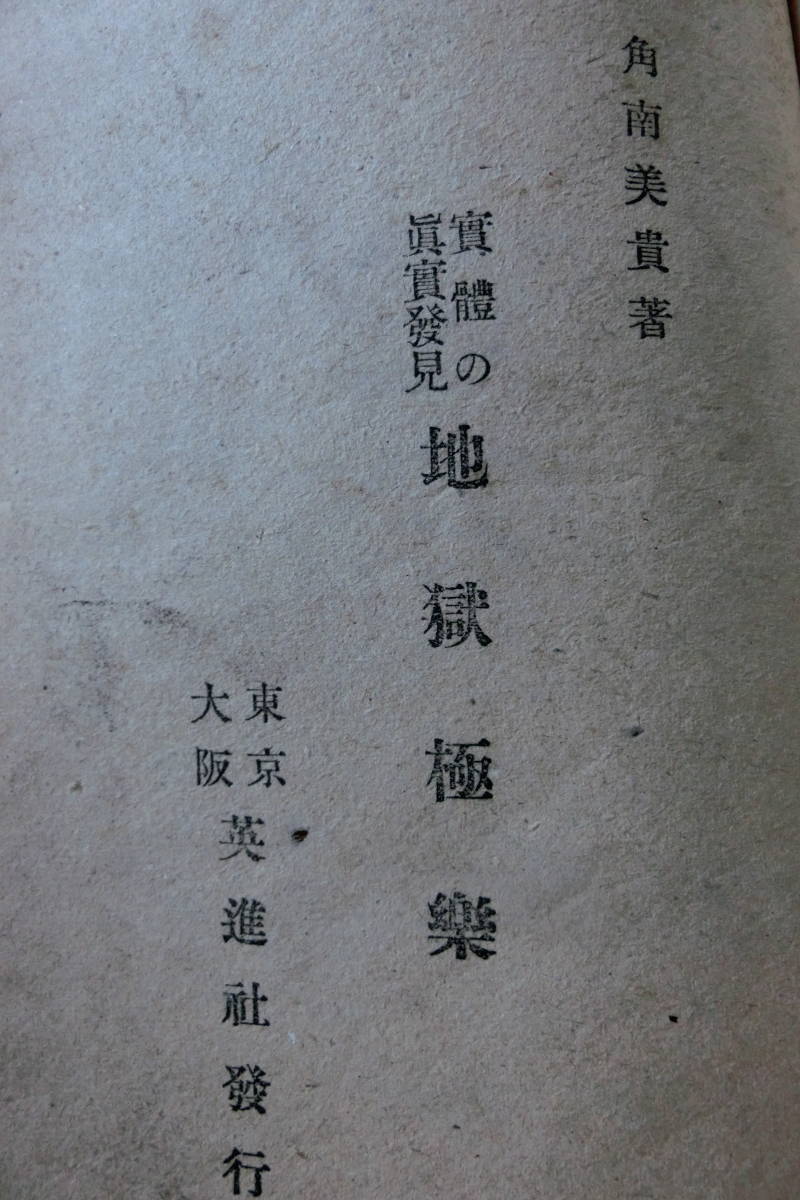 角南美貴著
實體の
眞實發見
地獄極樂
東京
大阪
英進社發行